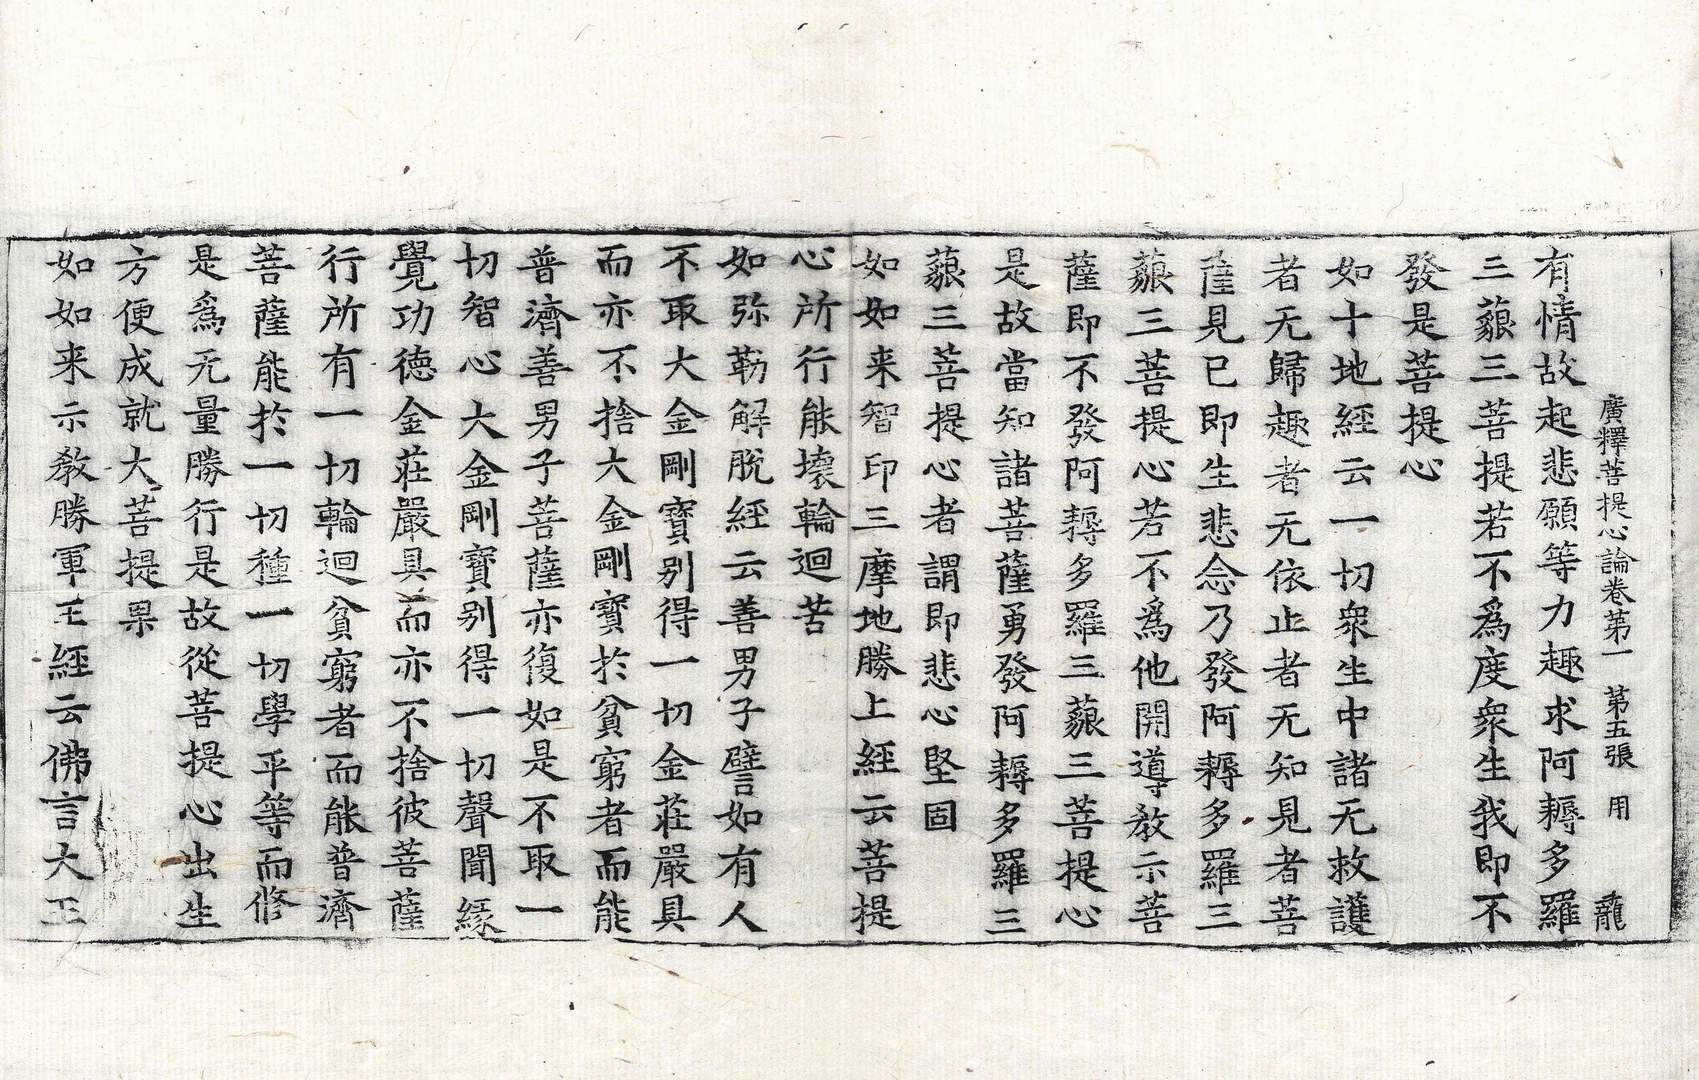 廣釋菩提心論卷第一 第五張 用 龍
有情故起悲願等力趣求阿耨多羅
三藐三菩提若不為度衆生我即不
發是菩提心
如十地經云一切衆生中諸无救護
者无歸趣者无依止者无知見者菩
薩見已即生悲念乃發阿耨多羅三
藐三菩提心若不為他開導教示菩
薩即不發阿耨多羅三藐三菩提心
是故當知諸菩薩勇發阿耨多羅三
藐三菩提心者謂即悲心堅固
如如来智印三摩地勝上經云菩提
心所行能壞輪迴苦
如弥勒解脫經云善男子譬如有人
不取大金剛寶別得一切金莊嚴具
而亦不捨大金剛寶於貧窮者而能
普濟善男子菩薩亦復如是不取一
切智心大金剛寶別得一切聲聞緣
覺功德金莊嚴具而亦不捨彼菩薩
行所有一切輪迴貧窮者而能普濟
菩薩能於一切種一切學平等而修
是為无量勝行是故從菩提心出生
方便成就大菩提果
如如来示教勝軍王經云佛言大王